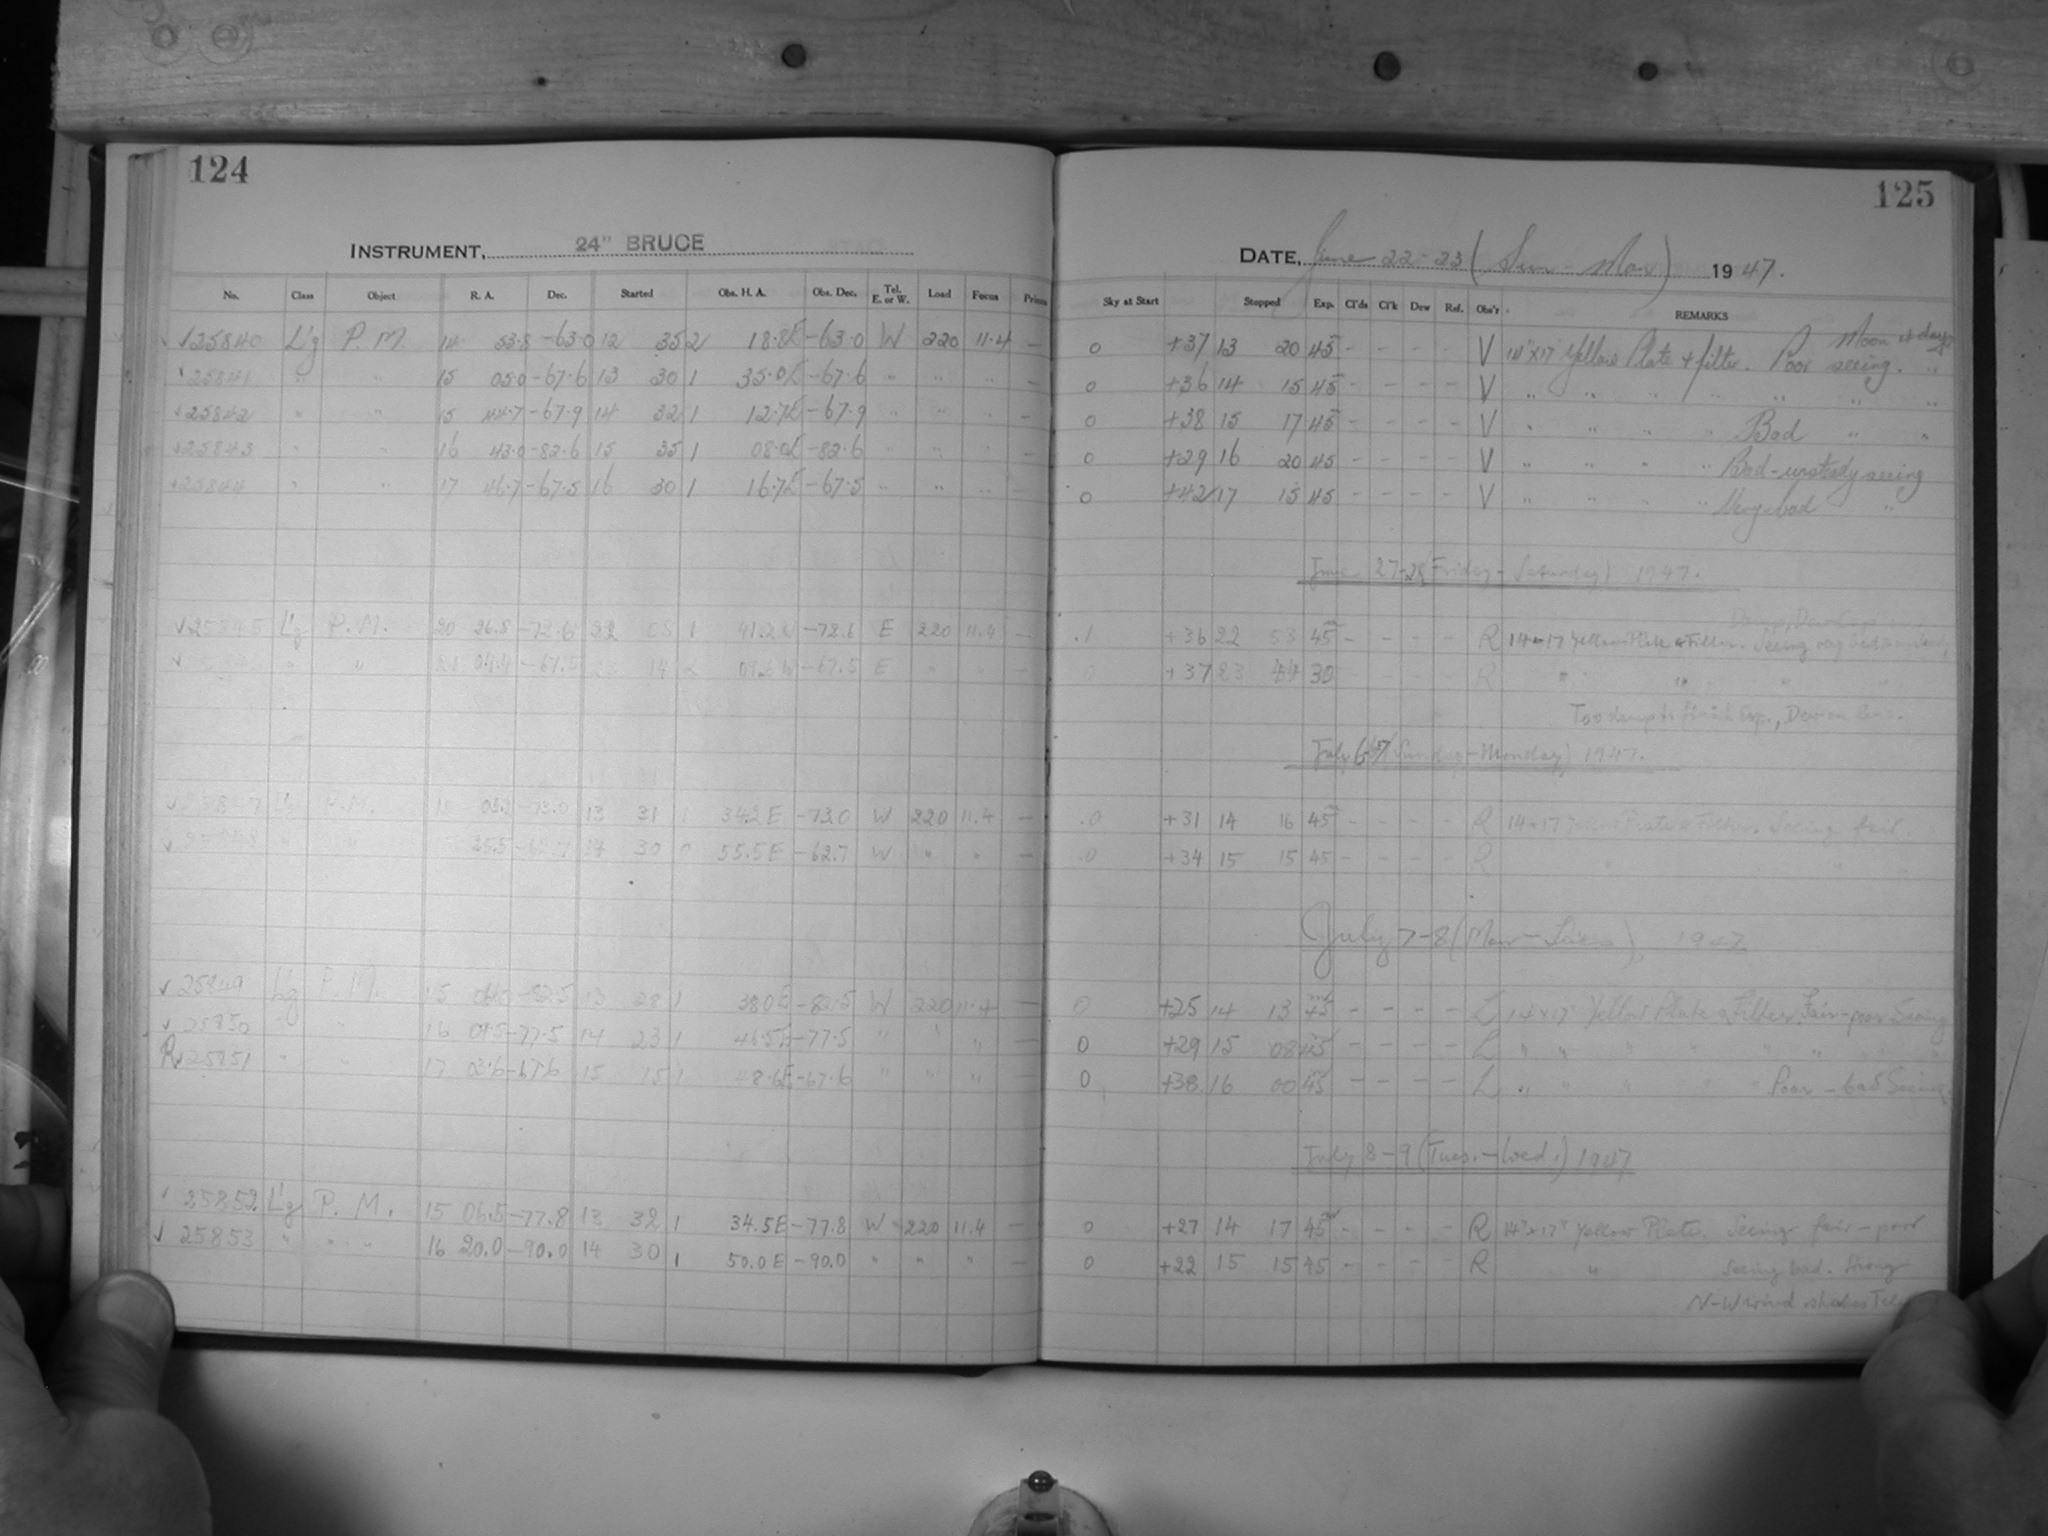 124
INSTRUMENT, 24" BRUCE
No. Class Object R. A. Dec. Started Obs. H. A. Obs. Dec. Tel. E. or W. Load Focus
25840 L'g P. M. 14 53.8 -63.0 12 35 2 18.8E -63.0 W 220 11.4 -
25841 " " 15 05.0 -67.6 13 30 1 35.0E -67.6 " " " -
25842 " " 15 44.7 -67.9 14 32 1 12.7E -67.9 " " " -
25843 " " 16 43.0 -82.6 15 35 1 08.0E -82.6 " " " -
25844 " " 17 46.7 -67.5 16 30 1 16.7E -67.5 " " " -
25845 L'g P. M. 20 26.8 -72.6 22 08 1 41.2 -72.6 E 220 11.4 -
" " 14 2 -67.5 E " " -
25847 L'g P.M. -73.0 13 31 34.2E -73.0 W 220 11.4 -
25.5 30 0 55.5E -62.7 W " " -
25849 L'g P. M. 15 -82.5 13 28 1 38.0E -82.5 W 220 11.4 -
25850 " " 16 09.5 -77.5 14 23 1 46.5E -77.5 " " " -
R 25851 " " 17 -67.6 15 15 1 48.6E -67.6 " " " -
25852 L'g P. M. 15 06.5 -77.8 13 32 1 34.5E -77.8 W 220 11.4 -
25853 " " 16 20.0 -90.0 14 30 1 50.0E -90.0 " " " -
125
DATE, June 22-23 (Sun - Mon) 1947.
Sky at Start Stopped Exp. Cl'ds Cl'k Dew Ref. Obs'r REMARKS
Moon 4 days
0 +37 13 20 45 - - - - V 14"x17" Yellow Plate & filter. Poor seeing. "
0 +36 14 15 45 - - - - V " " " " " " "
0 +38 15 17 45 - - - - V " " " " Bad " "
0 +29 16 20 45 - - - - V " " " " Bad - unsteady seeing
0 +42 17 15 45 - - - - V " " " " Very bad "
June 27-28 (Friday - Saturday) 1947.
.1 +36 22 53 45 - - - - R 14x17 Yellow Plate & Filter. Seeing
0 +37 23 44 30 - - - - R " " " "
Too damp to finish Exp., Dew on
July 6-7 (Sunday - Monday) 1947.
.0 +31 14 16 45 - - - - R 14x17 Yellow Plate & Filter. Seeing fair
.0 +34 15 15 45 - - - - R "
July 7-8 (Mon - Tues), 1947
0 +25 14 13 45 - - - - L 14"x17" Yellow Plate & Filter. Fair-poor Seeing
0 +29 15 08 45 - - - - L " " " " " " "
0 +38 16 00 45 - - - - L " " " " " Poor - bad Seeing
July 8-9 (Tues. - Wed.) 1947
0 +27 14 17 45 - - - - R 14"x17" Yellow Plate. Seeing fair - poor
0 +22 15 15 45 - - - - R " Seeing bad. Strong
N-W wind shakes